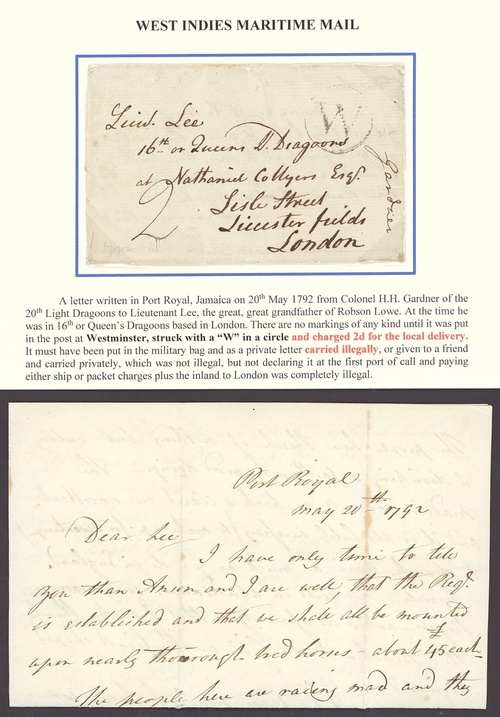 WEST INDIES MARITIME MAIL
Lieut. Lee
16th or Queens D. Dragoons
at Nathaniel Collyers Esqr.
Lisle Street
Liecester fields
London
W
2
Gardner
A letter written in Port Royal, Jamaica on 20th May 1792 from Colonel H.H. Gardner of the
20th Light Dragoons to Lieutenant Lee, the great, great grandfather of Robson Lowe. At the time he
was in 16th or Queen's Dragoons based in London. There are no markings of any kind until it was put
in the post at Westminster, struck with a "W" in a circle and charged 2d for the local delivery.
It must have been put in the military bag and as a private letter carried illegally, or given to a friend
and carried privately, which was not illegal, but not declaring it at the first port of call and paying
either ship or packet charges plus the inland to London was completely illegal.
Port Royal
may 20th 1792
Dear Lee
I have only time to tell
you than Anson and I are well, that the Regt.
is established and that we shall all be mounted
upon nearly thorough bred horses - about £45 each
The people here are racing mad and they